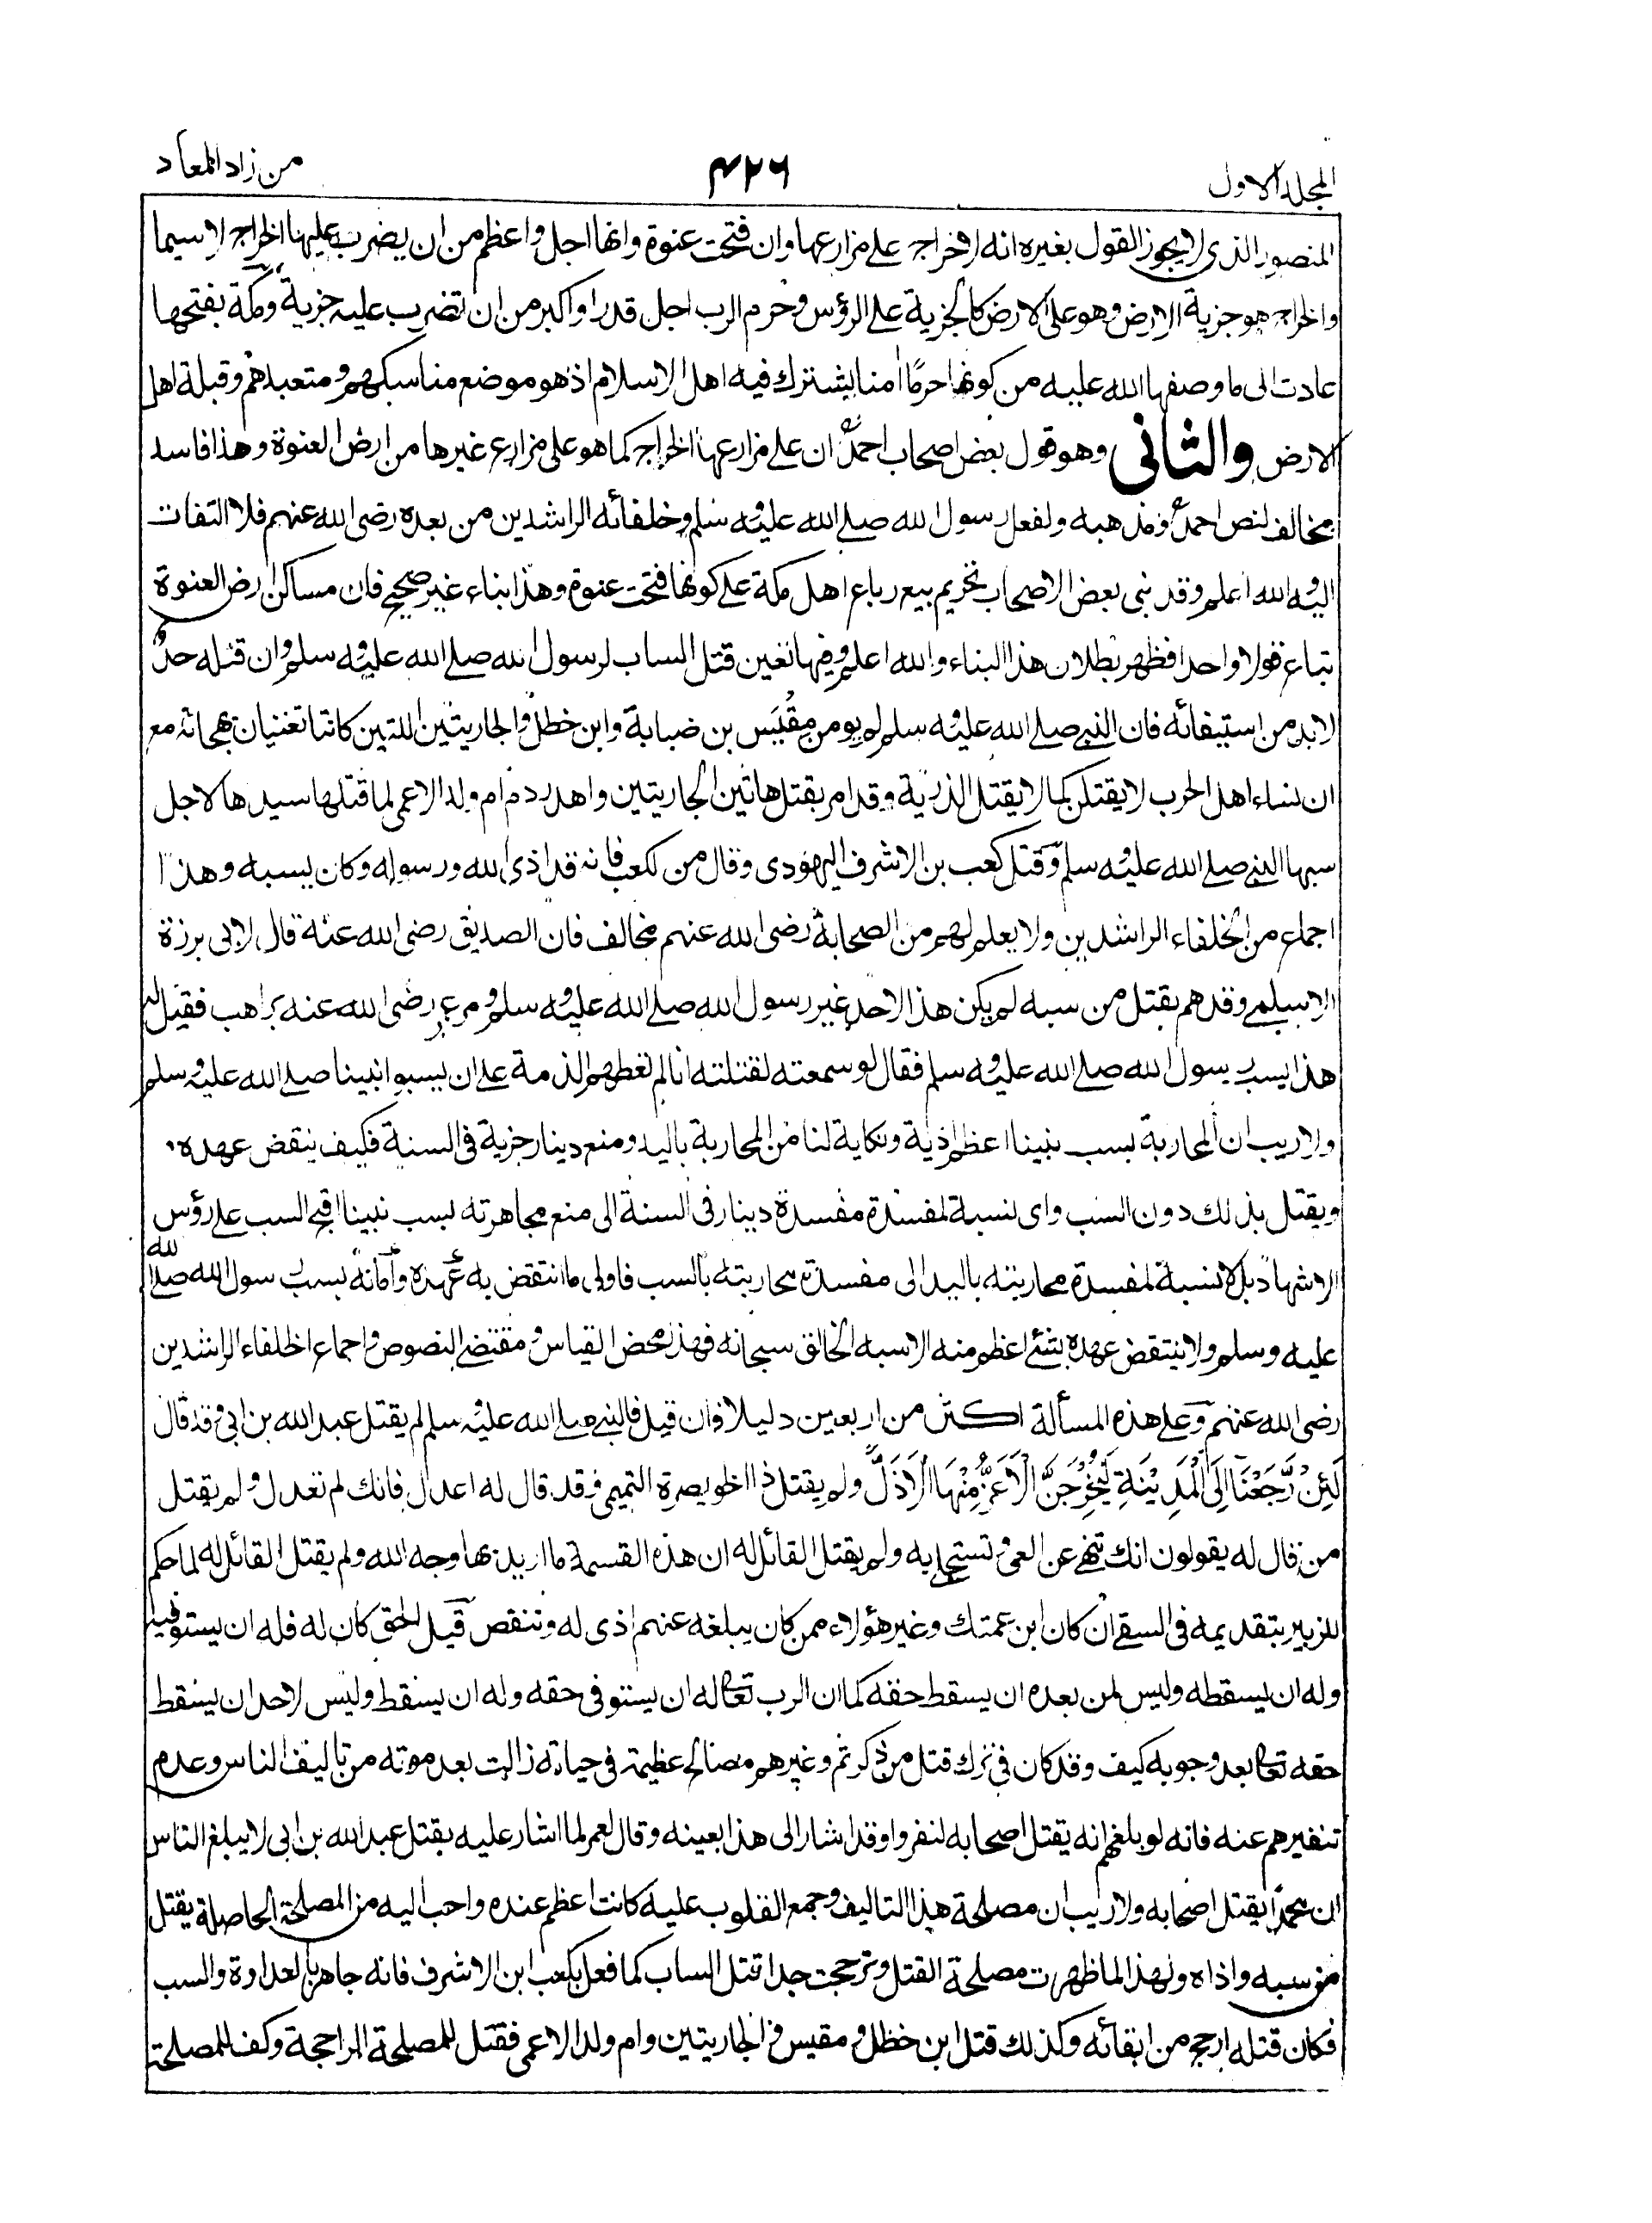 المجلد الاول
۴۲۶
من زاد المعاد
المنصور الذى لا يجوز القول بغيره انه لا خراج على مزارعها وان فتحت عنوة وانها اجل واعظم من ان يضرب عليها الخراج لا سيما
والخراج هو جزية الارض وهو على الارض كالجزية على الرؤس وحرم الرب اجل قدرا واكبر من ان تضرب عليه جزية ومكة بفتحها
عادت الى ما وصفها الله عليه من كونها حرمًا امنا يشترك فيه اهل الاسلام اذ هو موضع مناسكهم ومتعبدهم وقبلة اهل
الارض والثانى وهو قول بعض اصحاب احمد ان على مزارعها الخراج كما هو على مزارع غيرها من ارض العنوة وهذا فاسد
مخالف لنص احمد ومذهبه ولفعل رسول الله صلى الله عليه وسلم وخلفائه الراشدين من بعده رضى الله عنهم فلا التفات
اليه والله اعلم وقد بنى بعض الاصحاب تحريم بيع رباع اهل مكة على كونها فتحت عنوة وهذا بناء غير صحيح فان مساكن ارض العنوة
تباع قولا واحدا فظهر بطلان هذا البناء والله اعلم وفيها تعين قتل الساب لرسول الله صلى الله عليه وسلم وان قتله حدٌ
لابد من استيفائه فان النبى صلى الله عليه وسلم لم يومن مِقْيَس بن ضبابة وابن خطل والجاريتين اللتين كانتا تغنيان بهجائه مع
ان نساء اهل الحرب لا يقتلن كما لا يقتل الذرية وقد امر بقتل هاتين الجاريتين واهدر دم ام ولد الاعمى لما قتلها سيدها لاجل
سبها النبى صلى الله عليه وسلم وقتل كعب بن الاشرف اليهودى وقال من لكعب فانه قد اذى الله ورسوله وكان يسبه وهذا
اجماع من الخلفاء الراشدين ولا يعلم لهم من الصحابة رضى الله عنهم مخالف فان الصديق رضى الله عنه قال لابى برزة
الاسلمى وقد هم بقتل من سبه لم يكن هذا لاحد غير رسول الله صلى الله عليه وسلم ومر عمر رضى الله عنه براهب فقيل له
هذا يسب رسول الله صلى الله عليه وسلم فقال لو سمعته لقتلته انا لم نعطهم الذمة على ان يسبوا نبينا صلى الله عليه وسلم
ولا ريب ان المحاربة بسب نبينا اعظم اذية ونكاية لنا من المحاربة باليد ومنع دينار جزية فى السنة فكيف ينقض عهده
ويقتل بذلك دون السب واى نسبة لمفسدة مفسدة دينار فى السنة الى منع مجاهرته لسب نبينا اقبح السب على رؤس
الاشهاد بل لا نسبة لمفسدة محاربته باليد الى مفسدة محاربته بالسب فاولى ما انتقض به عهده وامانه بسب رسول الله صلى الله
عليه وسلم ولا ينتقض عهده بشئ اعظم منه الا سبه الخالق سبحانه فهذا محض القياس ومقتضى النصوص واجماع الخلفاء الراشدين
رضى الله عنهم وعلى هذه المسألة اكثر من اربعين دليلا فان قيل فالنبى صلى الله عليه وسلم لم يقتل عبد الله بن ابى وقد قال
لَئِنْ رَّجَعْنَا اِلَى الْمَدِيْنَةِ لَيُخْرِجَنَّ الْاَعَزُّ مِنْهَا الْاَذَلَّ ولم يقتل ذا الخويصرة التميمى وقد قال له اعدل فانك لم تعدل ولم يقتل
من قال له يقولون انك تنهى عن الغى وتستحلى به ولم يقتل القائل له ان هذه القسمة ما اريد بها وجه الله ولم يقتل القائل له لما حكم
للزبير بتقديمه فى السقى ان كان ابن عمتك وغير هؤلاء ممن كان يبلغه عنهم اذى له وتنقص قيل الحق كان له فله ان يستوفيه
وله ان يسقطه وليس لمن بعده ان يسقط حقه كما ان الرب تعالى له ان يستوفى حقه وله ان يسقط وليس لاحد ان يسقط
حقه تعالى بعد وجوبه كيف وقد كان فى ترك قتل من ذكرتم وغيرهم مصالح عظيمة فى حياته زالت بعد موته من تاليف الناس وعدم
تنفيرهم عنه فانه لو بلغهم انه يقتل اصحابه لنفروا وقد اشار الى هذا بعينه وقال لعمر لما اشار عليه بقتل عبد الله بن ابى لا يبلغ الناس
ان محمدا يقتل اصحابه ولا ريب ان مصلحة هذا التاليف وجمع القلوب عليه كانت اعظم عنده واحب اليه من المصلحة الحاصلة بقتل
من سبه واذاه ولهذا لما ظهرت مصلحة القتل وترجحت جدا قتل الساب كما فعل بكعب ابن الاشرف فانه جاهر بالعداوة والسب
فكان قتله ارجح من ابقائه وكذلك قتل ابن خطل ومقيس والجاريتين وام ولد الاعمى فقتل للمصلحة الراجحة وكف للمصلحة